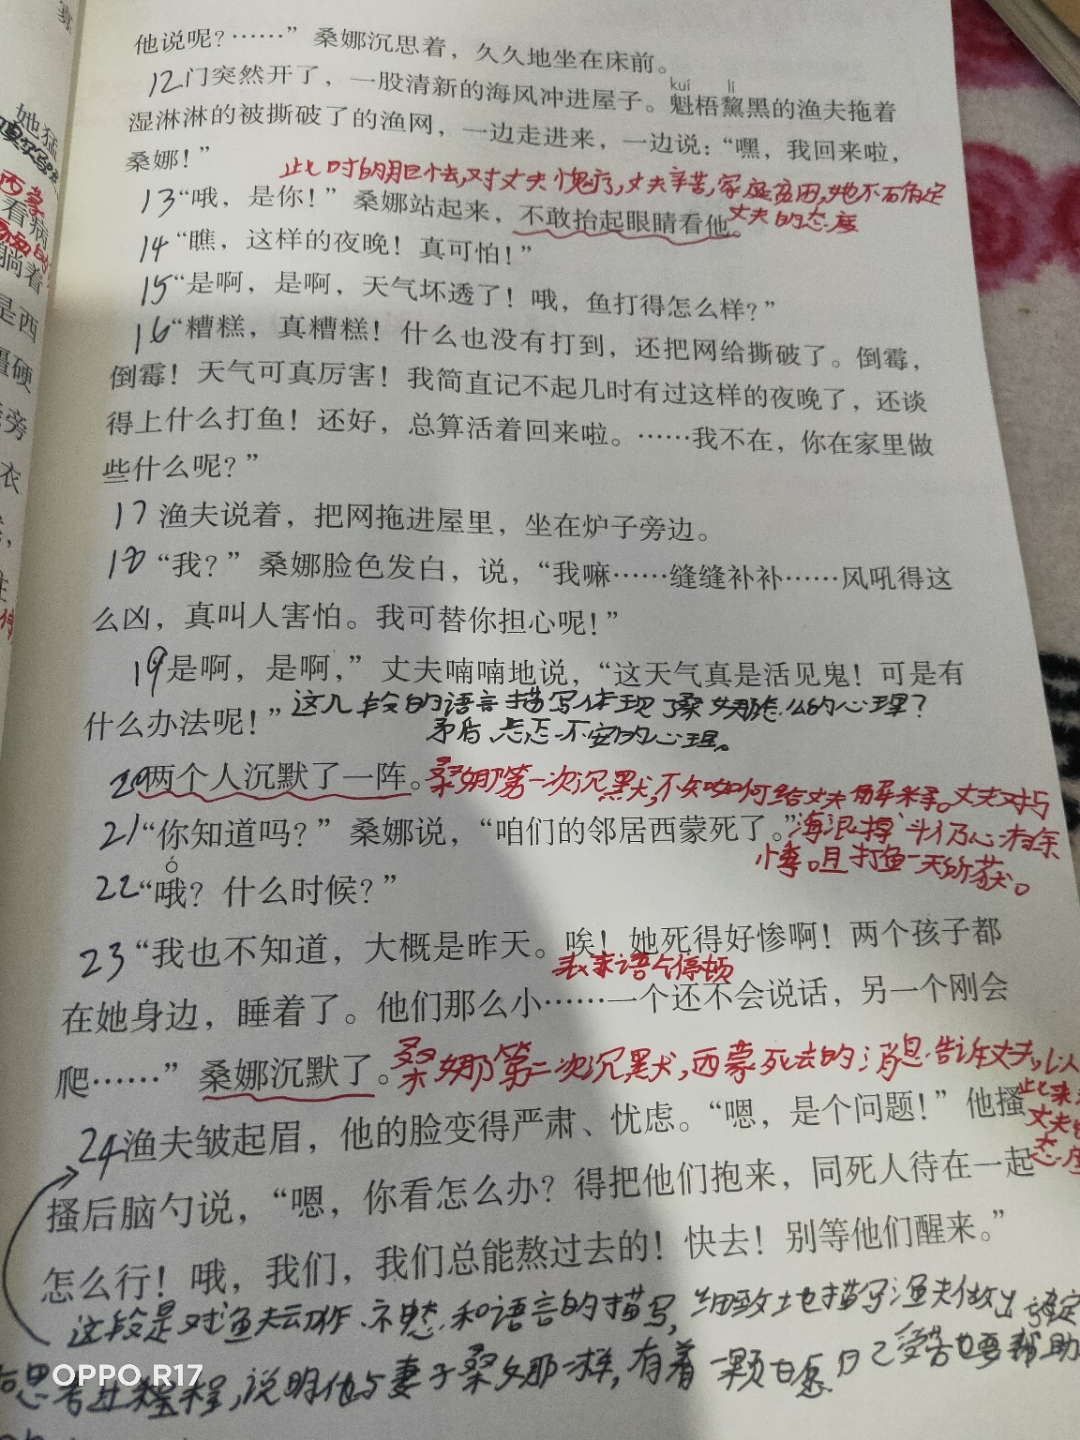 他说呢？……”桑娜沉思着，久久地坐在床前。
12门突然开了，一股清新的海风冲进屋子。魁梧黧黑的渔夫拖着
kuí lí
湿淋淋的被撕破了的渔网，一边走进来，一边说：“嘿，我回来啦，
桑娜！”
此时的胆怯，对丈夫愧疚，丈夫辛苦，家庭贫困，她不可确定
丈夫的态度
13“哦，是你！”桑娜站起来，不敢抬起眼睛看他。
14“瞧，这样的夜晚！真可怕！”
15“是啊，是啊，天气坏透了！哦，鱼打得怎么样？”
16“糟糕，真糟糕！什么也没有打到，还把网给撕破了。倒霉，
倒霉！天气可真厉害！我简直记不起几时有过这样的夜晚了，还谈
得上什么打鱼！还好，总算活着回来啦。……我不在，你在家里做
些什么呢？”
17渔夫说着，把网拖进屋里，坐在炉子旁边。
18“我？”桑娜脸色发白，说，“我嘛……缝缝补补……风吼得这
么凶，真叫人害怕。我可替你担心呢！”
19“是啊，是啊，”丈夫喃喃地说，“这天气真是活见鬼！可是有
什么办法呢！”
这几段的语言描写体现了桑娜怎么的心理？
矛盾、忐忑不安的心理。
20两个人沉默了一阵。
桑娜第一次沉默，不知如何给丈夫解释。丈夫对与
海浪搏斗仍心有余
悸。且打鱼一无所获。
21“你知道吗？”桑娜说，“咱们的邻居西蒙死了。”
ó
22“哦？什么时候？”
23“我也不知道，大概是昨天。唉！她死得好惨啊！两个孩子都
表示语气停顿
在她身边，睡着了。他们那么小……一个还不会说话，另一个刚会
爬……”桑娜沉默了。
桑娜第二次沉默，西蒙死去的消息告诉丈夫，以
此来
丈夫
态度
24渔夫皱起眉，他的脸变得严肃、忧虑。“嗯，是个问题！”他搔
搔后脑勺说，“嗯，你看怎么办？得把他们抱来，同死人待在一起
怎么行！哦，我们，我们总能熬过去的！快去！别等他们醒来。”
这段是对渔夫动作、神态、和语言的描写，细致地描写渔夫做出决定
思考过程，说明他与妻子桑娜一样，有着一颗甘愿自己受苦也要帮助
OPPO R17
她猛
看病
躺着
是西
僵硬
旁
衣